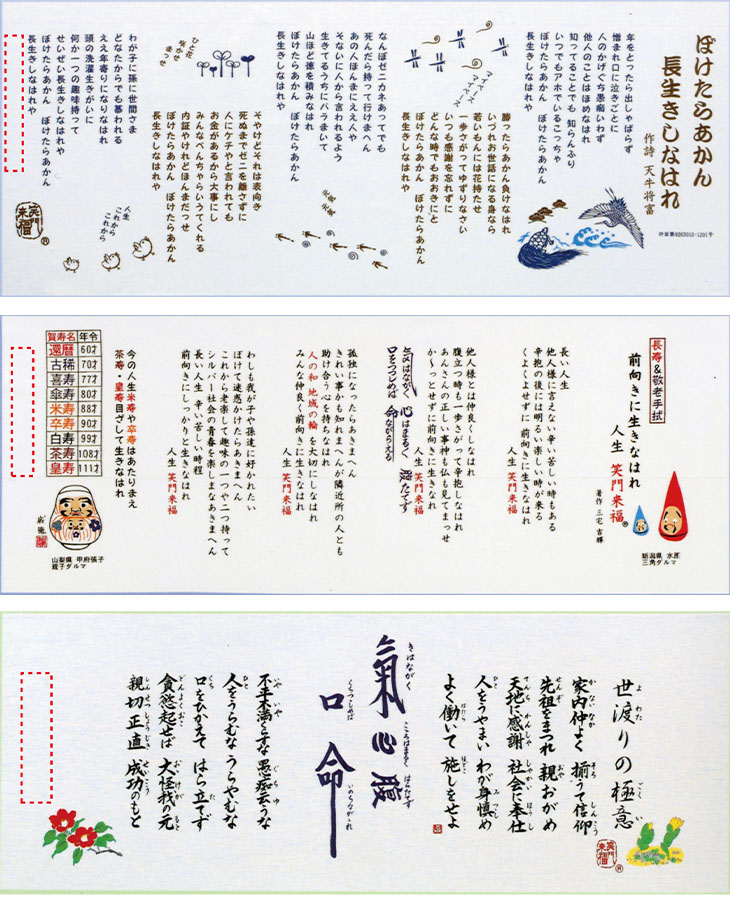 ぼけたらあかん
長生きしなはれ
作詩 天牛将富
年をとったら出しゃばらず
憎まれ口に泣きごとに
人のかげぐち愚痴いわず
他人のことはほめなはれ
知ってることでも 知らんふり
いつでもアホでいるこっちゃ
ぼけたらあかん ぼけたらあかん
長生きしなはれや
勝ったらあかん負けなはれ
いづれお世話になる身なら
若いもんには花持たせ
一歩さがってゆずりなさい
いつも感謝を忘れずに
どんな時でもおおきにと
ぼけたらあかん ぼけたらあかん
長生きしなはれや
なんぼゼニカネあってでも
死んだら持って行けまへん
あの人ほんまにええ人や
そないに人から言われるよう
生きてるうちにバラまいて
山ほど徳を積みなはれ
ぼけたらあかん ぼけたらあかん
長生きしなはれや
元気
元気
そやけどそれは表向き
死ぬまでゼニを離さずに
人にケチやと言われても
お金があるから大事にし
みんなべんちゃらいうてくれる
内証やけれどほんまだっせ
ぼけたらあかん ぼけたらあかん
長生きしなはれや
ひと花
咲かせ
まっせ
わが子に孫に世間さま
どなたからでも慕われる
ええ年寄りになりなはれ
頭の洗濯生きがいに
何か一つの趣味持って
せいぜい長生きしなはれや
ぼけたらあかん ぼけたらあかん
長生きしなはれや
人生
これから
これから
笑門来福®
長寿&敬老手拭
前向きに生きなはれ
人生 笑門来福®
著作 三宅 吉輝
新潟県 水原
三角ダルマ
長い人生
他人様に言えない辛い苦しい時もある
辛抱の後には明るい楽しい時が来る
くよくよせずに前向きに生きなはれ
人生 笑門来福
他人様とは仲良くしなはれ
腹立つ時も一歩さがって辛抱しなはれ
あんさんの正しい事神も仏も見てまっせ
か〜っとせずに前向きに生きなはれ
人生 笑門来福
気はながく 心はまるく 腹たてず
口をつつしめば 命ながらえる
孤独になったらあきまへん
きれい事かも知れまへんが隣近所の人とも
助け合う心を持ちなはれ
人の和 地域の輪を大切にしなはれ
みんな仲良く前向きに生きなはれ
人生 笑門来福
わしも我が子や孫達に好かれたい
ぼけて迷惑かけたらあきまへん
これから老楽しく趣味の一つや二つ持って
シルバー社会の青春を楽しまなあきまへん
長い人生 辛い苦しい時程
前向きにしっかりと生きなはれ
人生 笑門来福
今の人生米寿や卒寿はあたりまえ
茶寿・皇寿目ざして生きなはれ
賀寿名 年令
還暦 60才
古稀 70才
喜寿 77才
傘寿 80才
米寿 88才
卒寿 90才
白寿 99才
茶寿 108才
皇寿 111才
山梨県 甲府張子
親子ダルマ
世渡りの極意
よわた ごくい
家内仲よく 揃うて信仰
かないなか そろ しんこう
先祖をまつれ 親おがめ
せんぞ おや
天地に感謝 社会に奉仕
てんち かんしゃ しゃかい ほうし
人をうやまい わが身慎め
ひと み つつし
よく働いて 施しをせよ
はたら ほどこ
氣心腹
きはながく こころはまるく はらたてず
口命
くちつつしめば いのちながれ
不平不満くらすな 愚痴云うな
人をうらむな うらやむな
口をひかえて はら立てず
貪慾起せば 大怪我の元
親切正直 成功のもと
しんせつしょうじき せいこう
笑門来福®